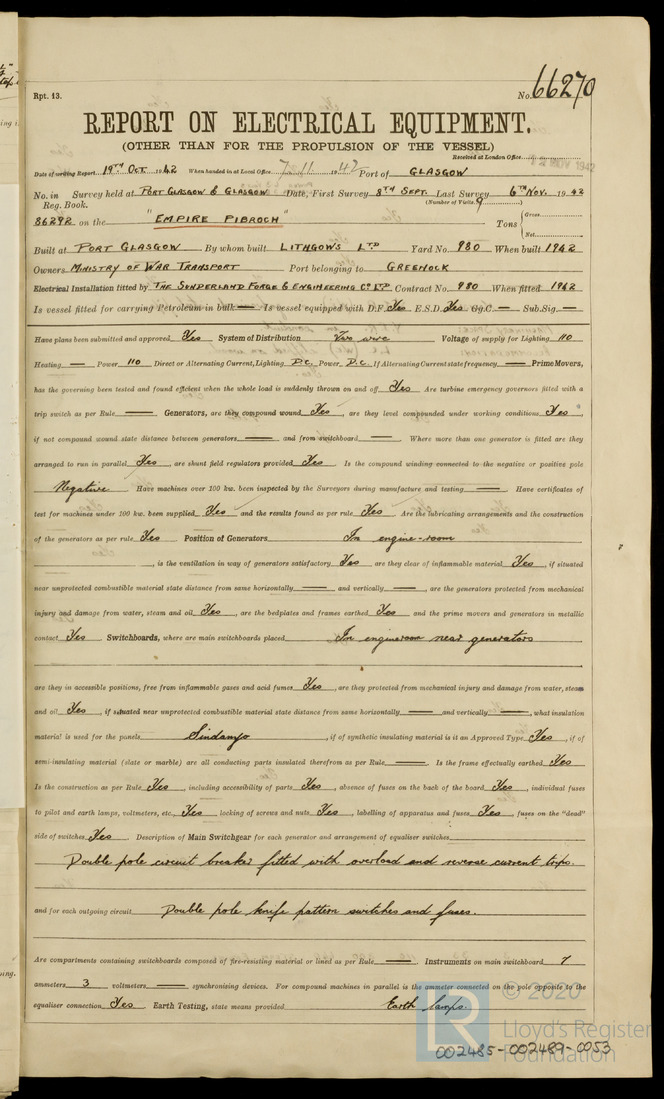 Rpt. 13.
No. 66270
REPORT ON ELECTRICAL EQUIPMENT.
(OTHER THAN FOR THE PROPULSION OF THE VESSEL)
Received at London Office
NOV 1942
Date of writing Report 19TH OCT. 1942 When handed in at Local Office 7.11.1942 Port of GLASGOW
No. in Survey held at PORT GLASGOW & GLASGOW Date, First Survey 8TH SEPT. Last Survey 6TH NOV. 1942
Reg. Book. (Number of Visits. 9
86292 on the "EMPIRE PIBROCH" Tons { Gross
Net
Built at PORT GLASGOW By whom built LITHGOWS LTD Yard No. 980 When built 1942
Owners MINISTRY OF WAR TRANSPORT Port belonging to GREENOCK
Electrical Installation fitted by THE SUNDERLAND FORGE & ENGINEERING CO LTD Contract No. 980 When fitted 1942
Is vessel fitted for carrying Petroleum in bulk — Is vessel equipped with D.F. Yes E.S.D. Yes Gy.C. — Sub.Sig. —
Have plans been submitted and approved Yes System of Distribution Two wire Voltage of supply for Lighting 110
Heating — Power 110 Direct or Alternating Current, Lighting D.C. Power D.C. If Alternating Current state frequency — Prime Movers,
has the governing been tested and found efficient when the whole load is suddenly thrown on and off Yes Are turbine emergency governors fitted with a
trip switch as per Rule — Generators, are they compound wound Yes, are they level compounded under working conditions Yes,
if not compound wound state distance between generators — and from switchboard —. Where more than one generator is fitted are they
arranged to run in parallel Yes, are shunt field regulators provided Yes. Is the compound winding connected to the negative or positive pole
Negative Have machines over 100 kw. been inspected by the Surveyors during manufacture and testing — Have certificates of
test for machines under 100 kw. been supplied Yes and the results found as per rule Yes Are the lubricating arrangements and the construction
of the generators as per rule Yes Position of Generators In engine-room
, is the ventilation in way of generators satisfactory Yes are they clear of inflammable material Yes, if situated
near unprotected combustible material state distance from same horizontally — and vertically —, are the generators protected from mechanical
injury and damage from water, steam and oil Yes, are the bedplates and frames earthed Yes and the prime movers and generators in metallic
contact Yes Switchboards, where are main switchboards placed In engineroom near generators
are they in accessible positions, free from inflammable gases and acid fumes Yes, are they protected from mechanical injury and damage from water, steam
and oil Yes, if situated near unprotected combustible material state distance from same horizontally — and vertically —, what insulation
material is used for the panels Sindanyo, if of synthetic insulating material is it an Approved Type Yes, if of
semi-insulating material (slate or marble) are all conducting parts insulated therefrom as per Rule —. Is the frame effectually earthed Yes
Is the construction as per Rule Yes, including accessibility of parts Yes, absence of fuses on the back of the board Yes, individual fuses
to pilot and earth lamps, voltmeters, etc., Yes locking of screws and nuts Yes, labelling of apparatus and fuses Yes, fuses on the "dead"
side of switches Yes. Description of Main Switchgear for each generator and arrangement of equaliser switches
Double pole circuit breaker fitted with overload and reverse current trips.
and for each outgoing circuit Double pole knife pattern switches and fuses.
Are compartments containing switchboards composed of fire-resisting material or lined as per Rule —. Instruments on main switchboard 7
ammeters 3 voltmeters — synchronising devices. For compound machines in parallel is the ammeter connected on the pole opposite to the
equaliser connection Yes Earth Testing, state means provided Earth lamps.
© 2020
Lloyd's Register
Foundation
002485-002489-0053